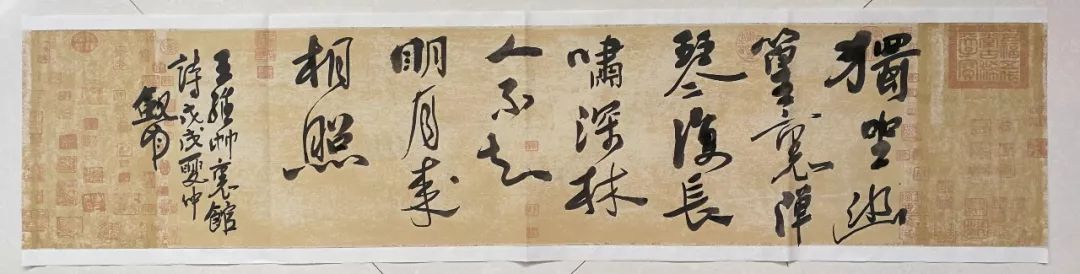 獨坐幽
篁裏弹
琴復長
嘯深林
人不知
明月来
相照
王維竹裏館
詩戊戌夏仲